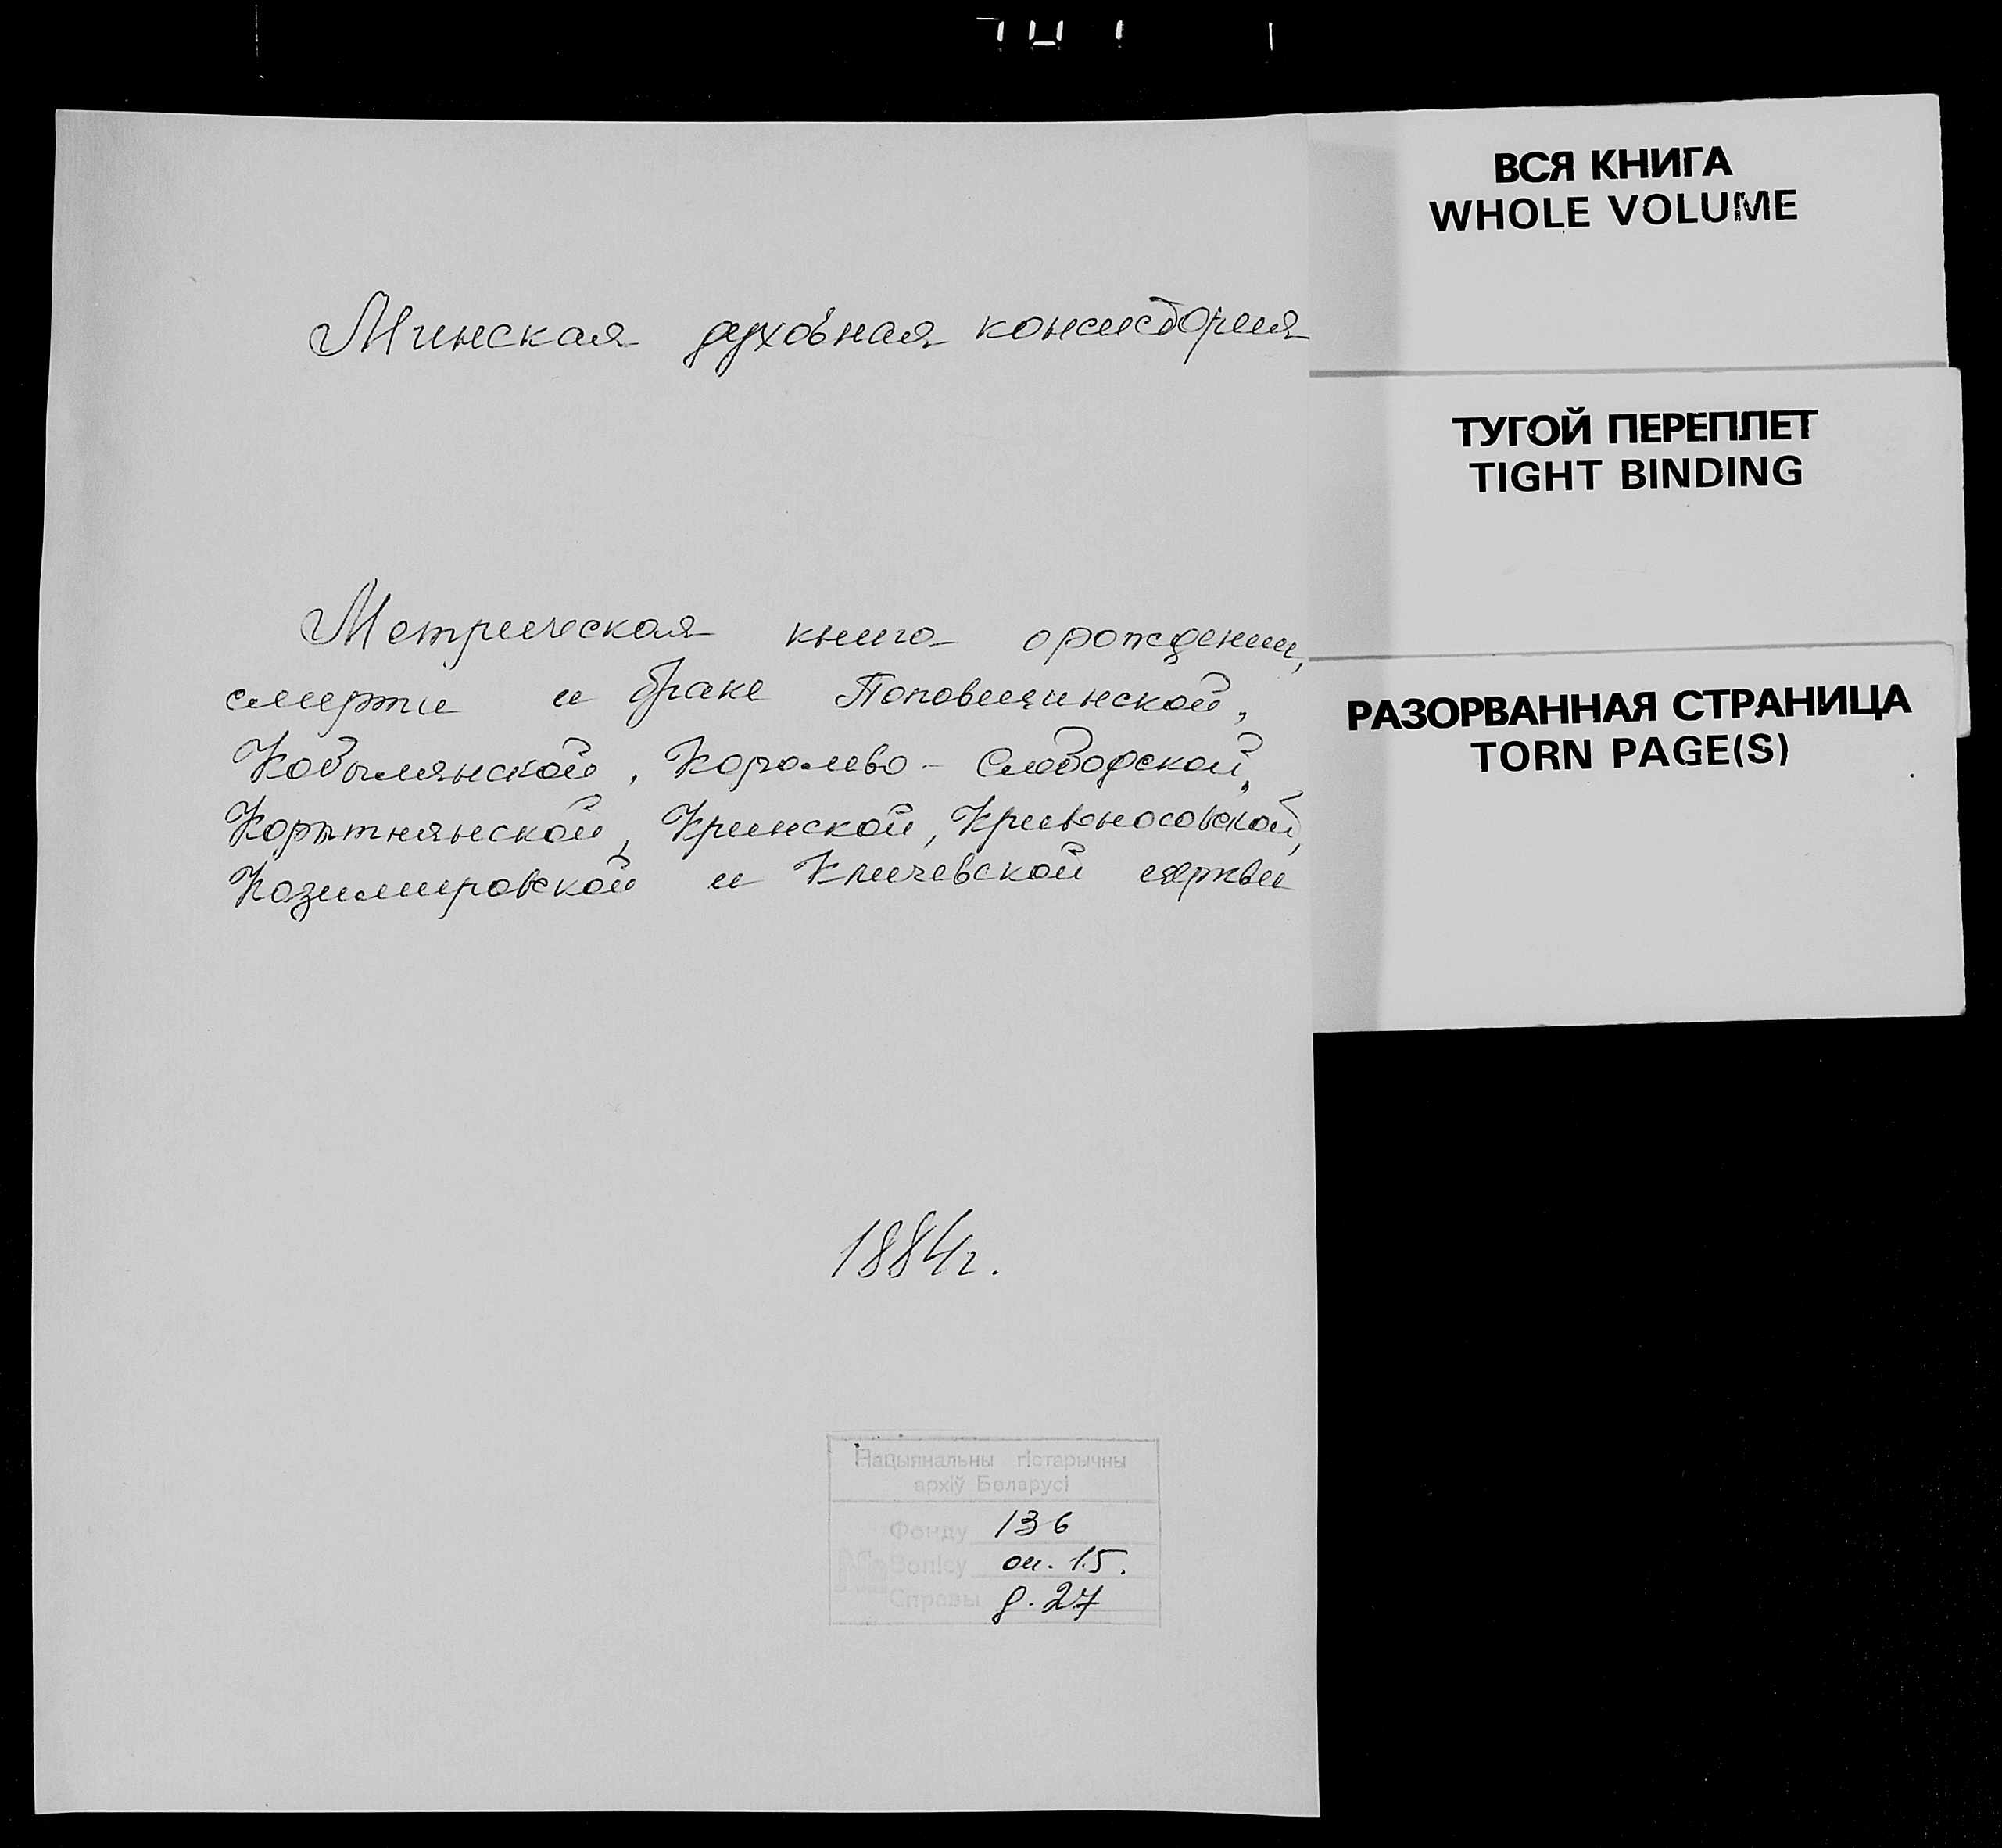 Минская духовная консистория
Метрическая книга о рождении,
смерти и браке Поповщинской,
Кобылянской, Королево-Слободской,
Корытнянской, Кринской, Кривоносовской,
Казимировской и Кличевской церкви
1884г.
Нацыянальны гістарычны
архіў Беларусі
Фонду 136
№ Вопісу оп. 15.
Справы д. 27
ВСЯ КНИГА
WHOLE VOLUME
ТУГОЙ ПЕРЕПЛЕТ
TIGHT BINDING
РАЗОРВАННАЯ СТРАНИЦА
TORN PAGE(S)